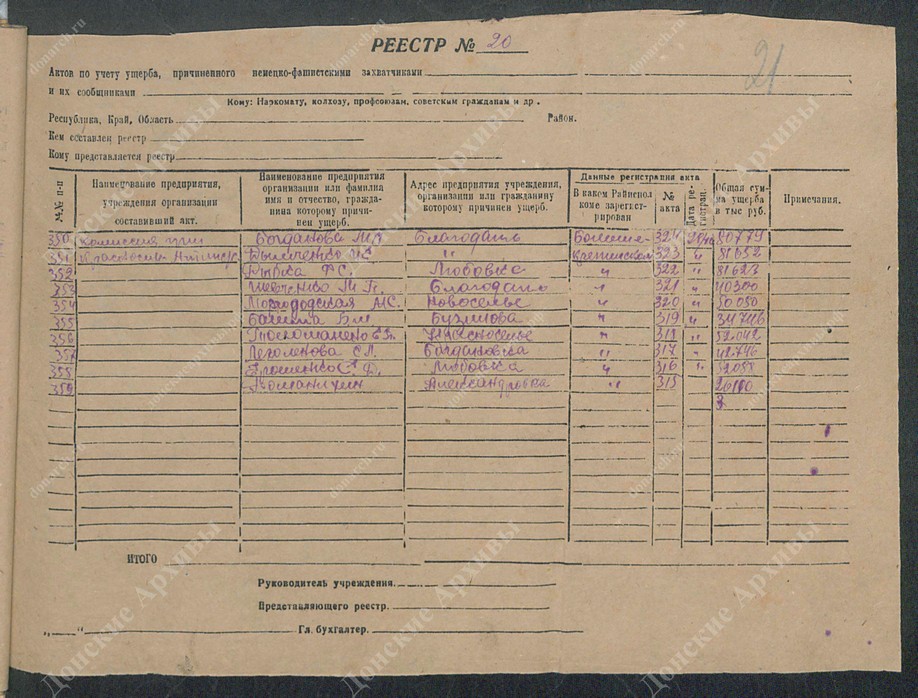 РЕЕСТР № 20
21
Актов по учету ущерба, причиненного немецко-фашистскими захватчиками
и их сообщниками
Кому: Наркомату, колхозу, профсоюзам, советским гражданам и др.
Республика, Край, Область Район.
Кем составлен реестр
Кому представляется реестр
№№ п-п
Наименование предприятия, учреждения организации составивший акт.
Наименование предприятия организации или фамилия имя и отчество, гражданина которому причинен ущерб.
Адрес предприятия учреждения, организации или гражданину которому причинен ущерб.
Данные регистрации акта
В каком Райисполкоме зарегистрирован
№ акта
Дата регистрац.
Общая сумма ущерба в тыс руб.
Примечания.
350 комиссия при Богданова М. Благодать Больше- 324 80779
351 " Крепинском 323 " 81652
352 Ф С. Любовка " 322 " 81623
353 Шевченко М П. Благодать " 321 " 40300
354 А.С. Новоселье " 320 " 50050
355 " 319 " 34746
356 Красноселье " 318 "
357 С Л. Богдановка " 317 " 42746
358 Ф. Любовка " 316 "
359 Александровка " 315
ИТОГО
Руководитель учреждения.
Представляющего реестр.
„ “ Гл. бухгалтер.
Донские Архивы
donarch.ru